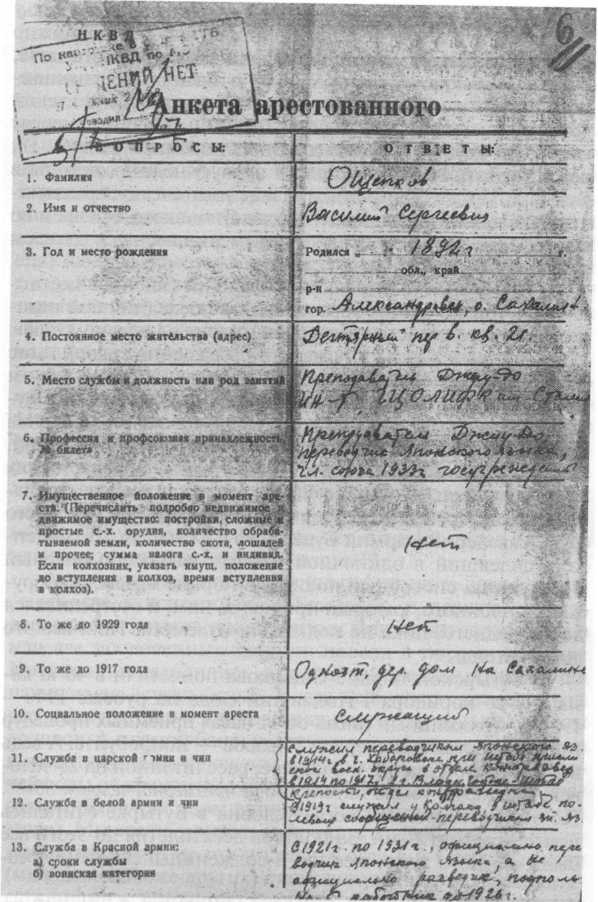 6
НКВД
НКВД по
НЕТ
Анкета арестованного
ВОПРОСЫ:
ОТВЕТЫ:
1. Фамилия
Ощепков
2. Имя и отчество
Василий Сергеевич
3. Год и место рождения
Родился „ " 1892 г г.
обл., край
р-н
гор. Александровск, о. Сахалин
4. Постоянное место жительства (адрес)
Дегтярный пер 8. кв. 21.
5. Место службы и должность или род занятий
Преподаватель Джиу-до
ГЦОЛИФК им Сталин
6. Профессия и профсоюзная принадлежность,
№ билета
Преподаватель Джиу-до,
переводчик Японского языка,
чл. союза 1933г госучреждений
7. Имущественное положение в момент аре-
ста. (Перечислить подробно недвижимое и
движимое имущество: постройки, сложные и
простые с.-х. орудия, количество обраба-
тываемой земли, количество скота, лошадей
и прочее; сумма налога с.-х. и индивид.
Если колхозник, указать имущ. положение
до вступления в колхоз, время вступления
в колхоз).
нет
8. То же до 1929 года
нет
9. То же до 1917 года
Одноэт. дер. дом на Сахалине
10. Социальное положение в момент ареста
Служащий
11. Служба в царской армии и чин
Служил переводчиком Японского яз.
в 1914г. в г. Хабаровске при штабе
воен. округа в отделе
с 1914 по 1917
крепости,
12. Служба в белой армии и чин
В 1919г служил у Колчака, в штабе по-
левых сообщений переводчиком яп. яз.
13. Служба в Красной армии:
а) сроки службы
б) воинская категория
С 1921г. по 1931г., официально пере
водчик Японского языка, а не
официально разведчик, подполь
работник до 1926г.